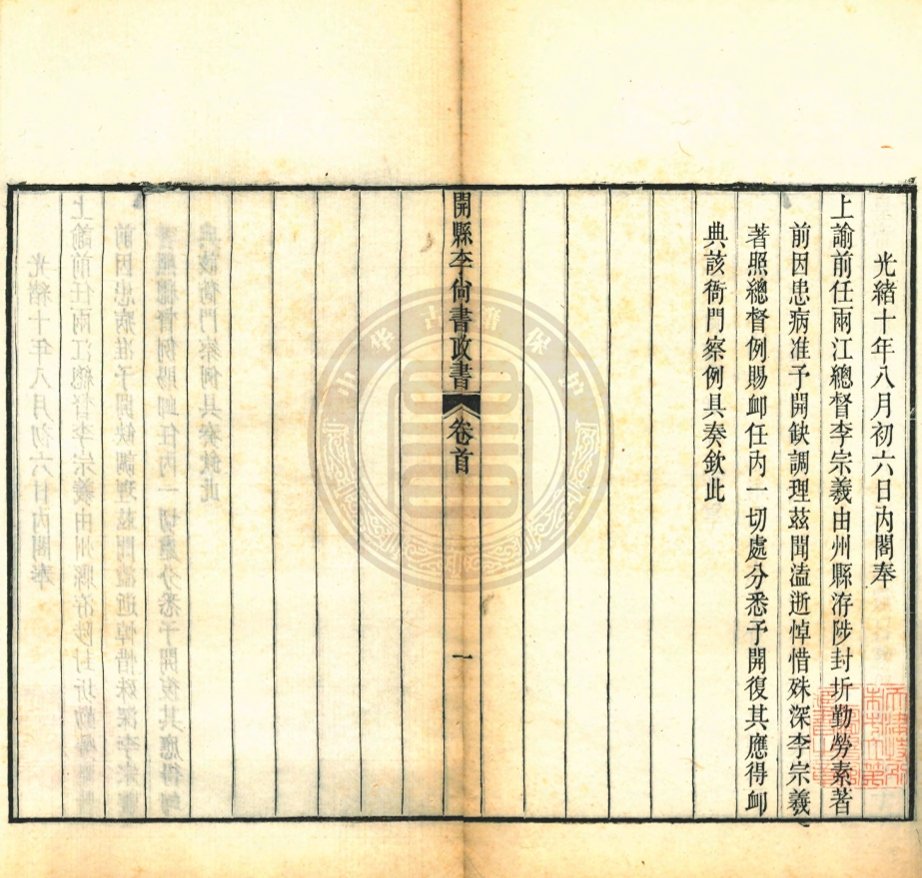 光緒十年八月初六日內閣奉
上諭前任兩江總督李宗羲由州縣洊陟封圻勤勞素著
前因患病准予開缺調理茲聞溘逝悼惜殊深李宗羲
著照總督例賜卹任內一切處分悉予開復其應得卹
典該衙門察例具奏欽此
開縣李尙書政書
卷首
一
中华古籍保护